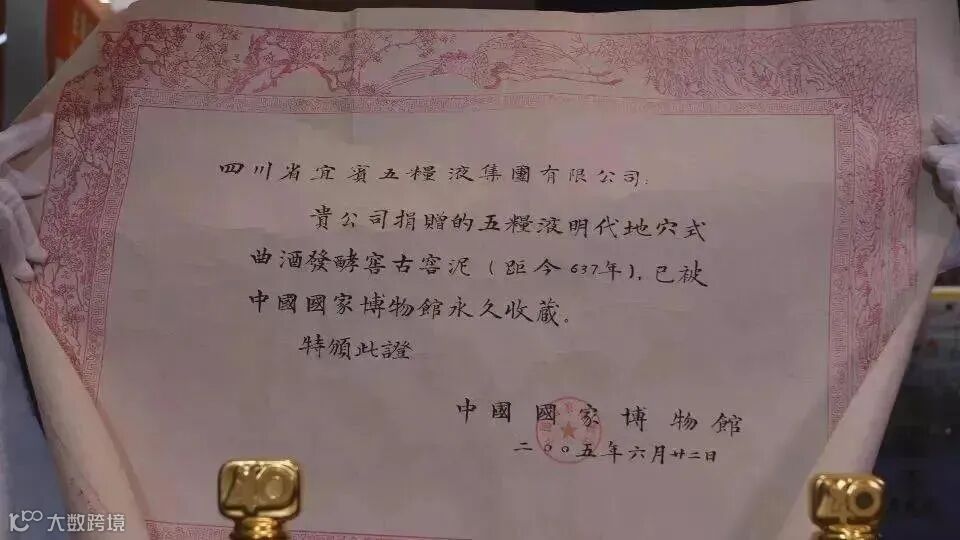 四川省宜賓五糧液集團有限公司:
貴公司捐贈的五糧液明代地穴式
曲酒發酵窖古窖泥(距今637年),已被
中國國家博物館永久收藏。
特頒此證
中國國家博物館
二〇〇五年六月廿二日
40
40
大数跨境